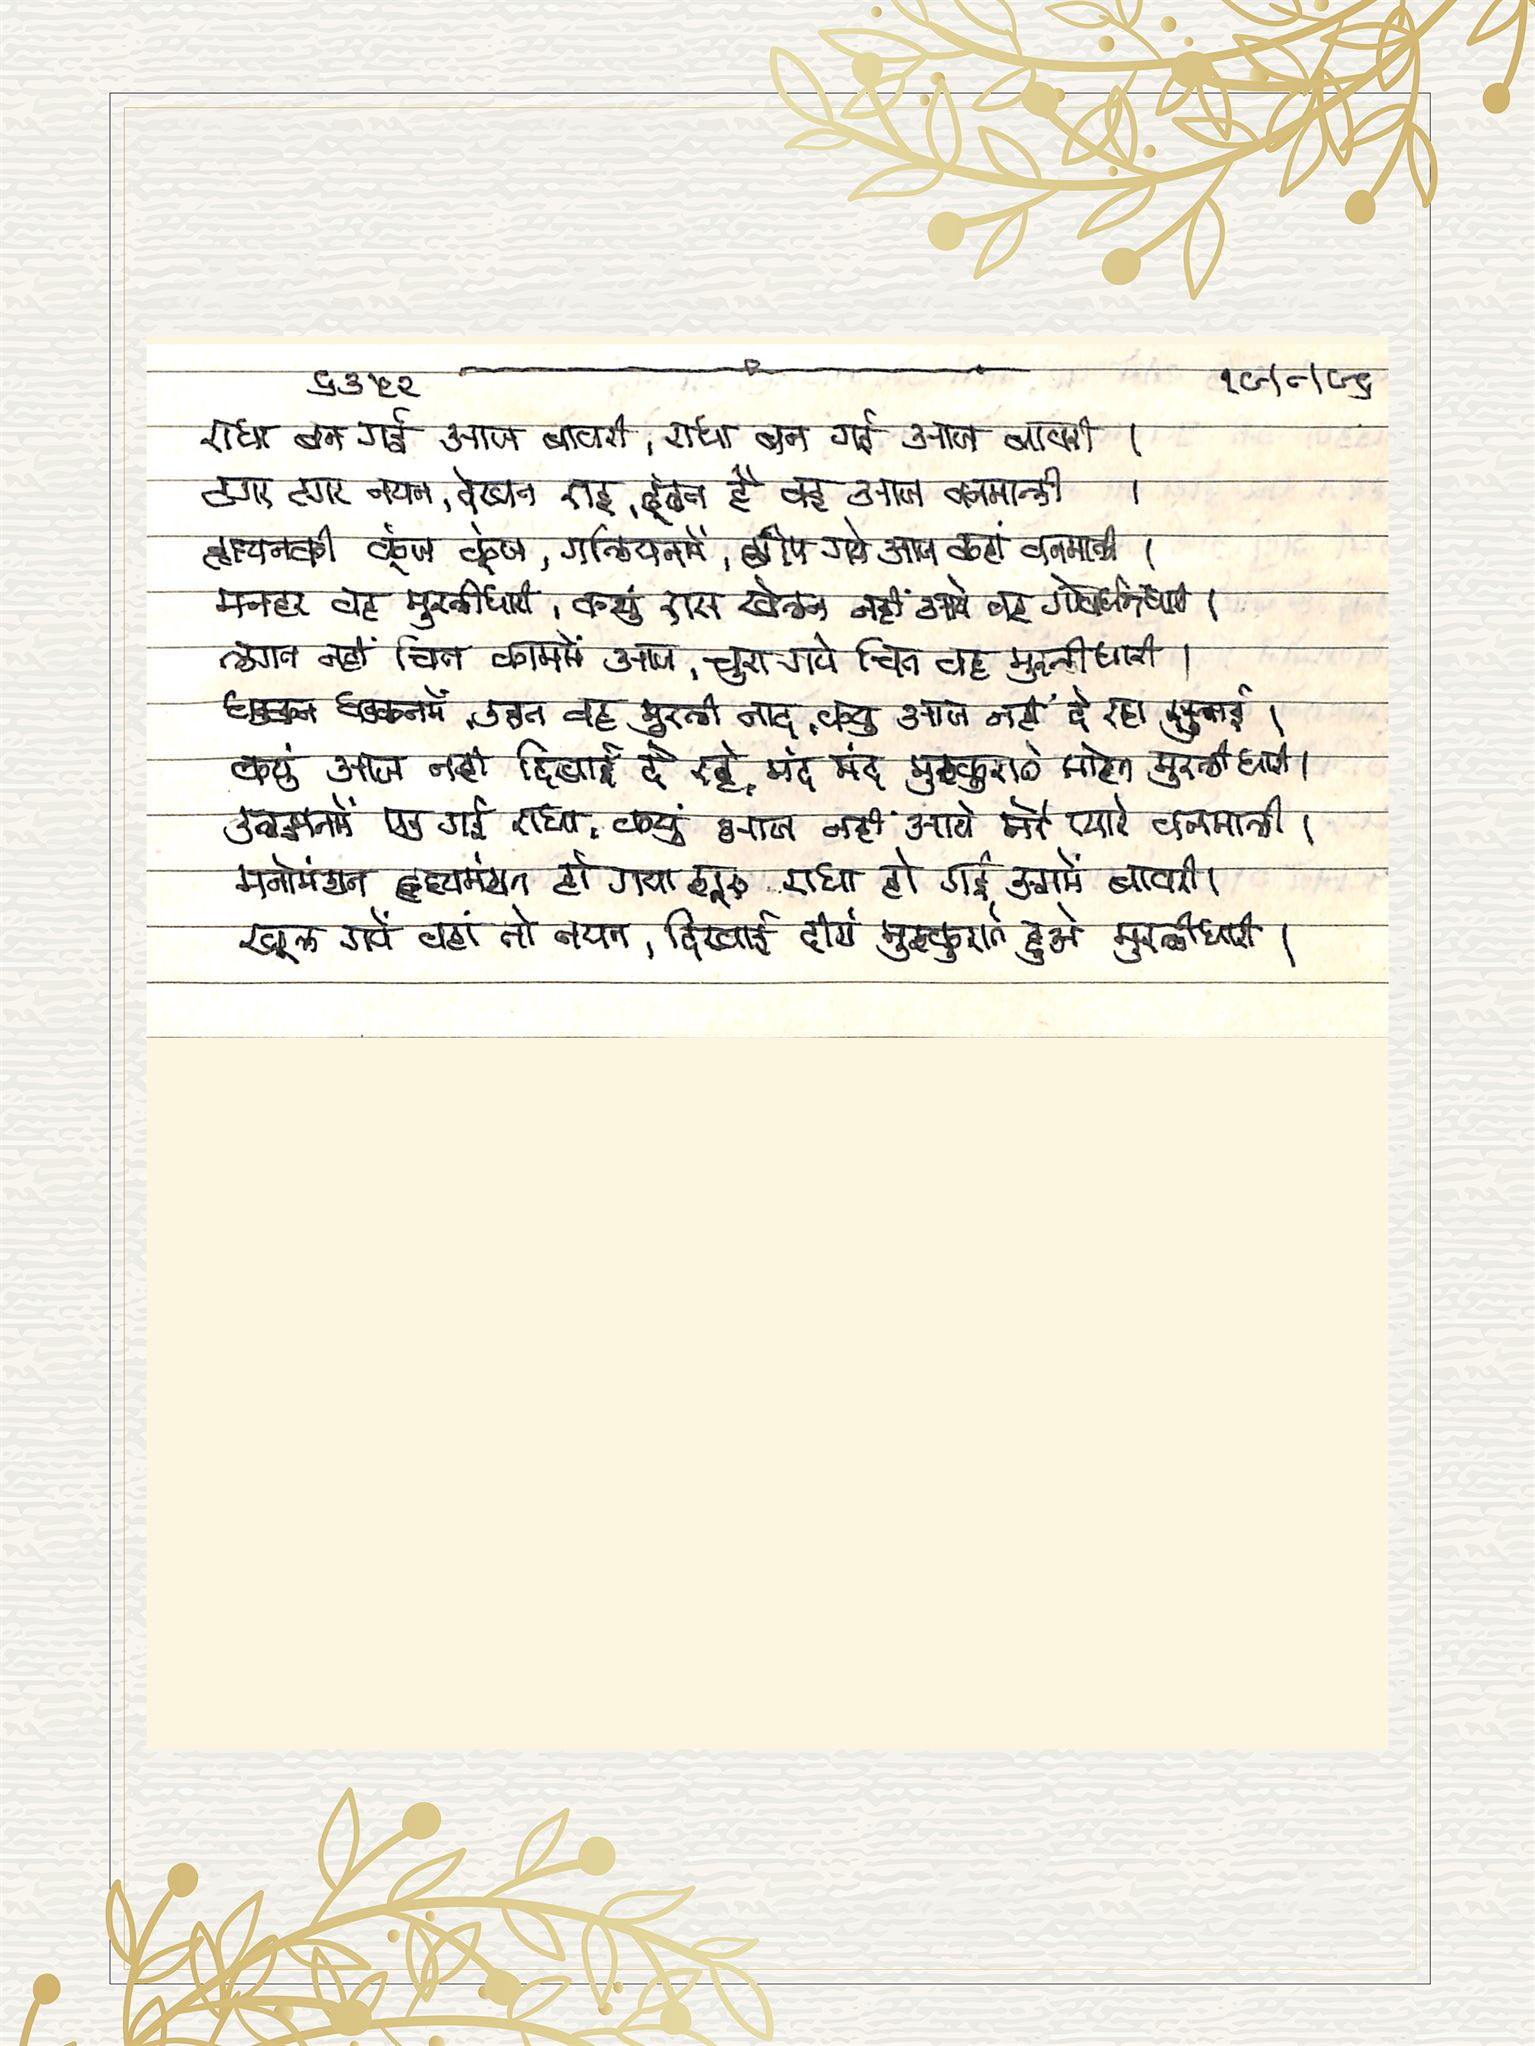 ६३५२
राधा बन गई आज बावरी, राधा बन गई आज बावरी ।
टगर टगर नयन, देखन राह, ढूंढन है वह आज वनमाली ।
कुंज कुंज, गलियनमें, छीप गये आज कहां वनमाली ।
मनहर वह मुरलीधारी, कयुं रास खेलन नहीं आये वह गोवर्धनधारी ।
लगन नहीं चित काममें आज, चुरा गये चित वह मुरलीधारी ।
धडकन धडकनमें, उठत वह मुरली नाद, कयुं आज नहीं दे रहा सुनाई ।
कयुं आज नहीं दिखाई दे रहे, मंद मंद मुस्कुराते मोहन मुरलीधारी ।
उलझनमें पड गई राधा, कयुं आज नहीं आये मेरे प्यारे वनमाली ।
मनोमंथन हृदयमंथन हो गया शुरू राधा हो गई उसमें बावरी ।
खूल गये वहां तो नयन, दिखाई दीये मुस्कुराते हुअे मुरलीधारी ।